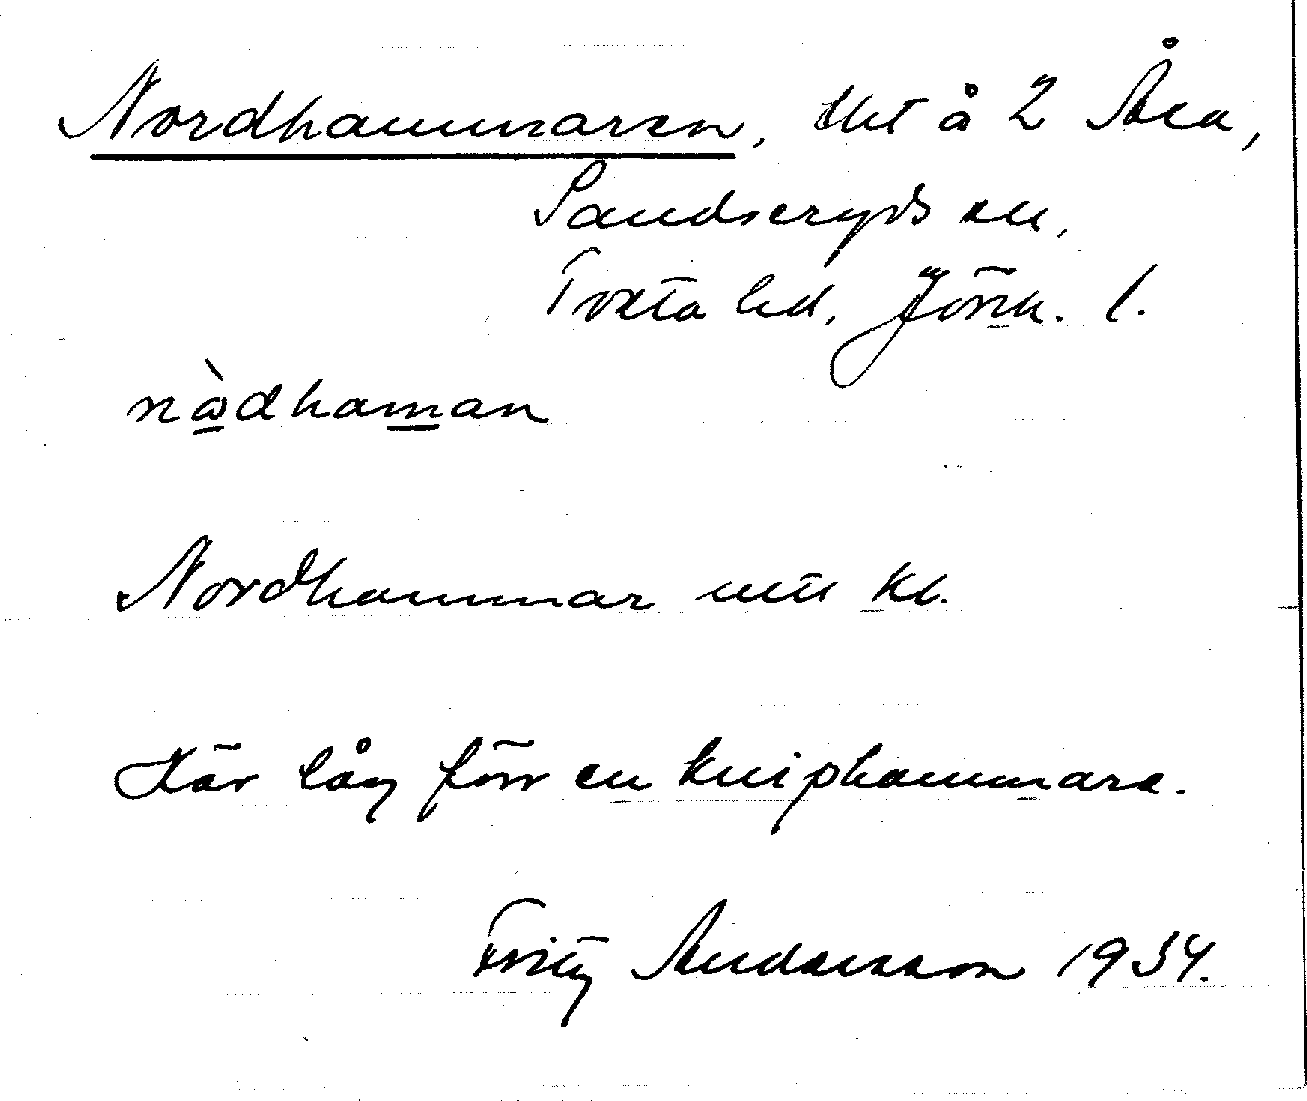 Nordhammaren, tht å 2 Åsa,
Sandseryds sn,
Tveta hd, Jönk. l.
nòdhaman
Nordhammar mtl kb.
Här låg förr en kniphammare.
Fritz Andersson 1934.